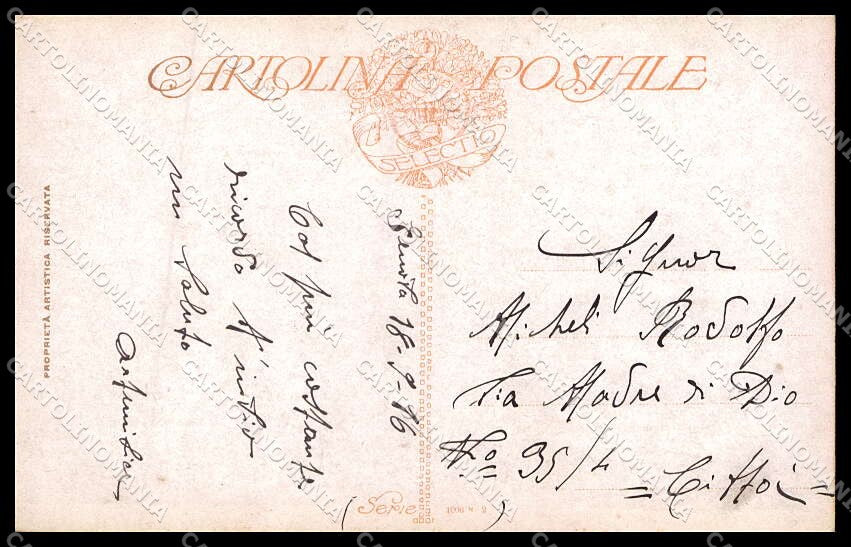 CARTOLINA POSTALE
SELECTIO
PROPRIETÀ ARTISTICA RISERVATA
Genova 18-9-16
Col più costante
ricordo t'invio
un saluto
Signor
Micheli Rodolfo
Via Madre di Dio
No 35/4
= Città =
(Serie )
CARTOLINOMANIA